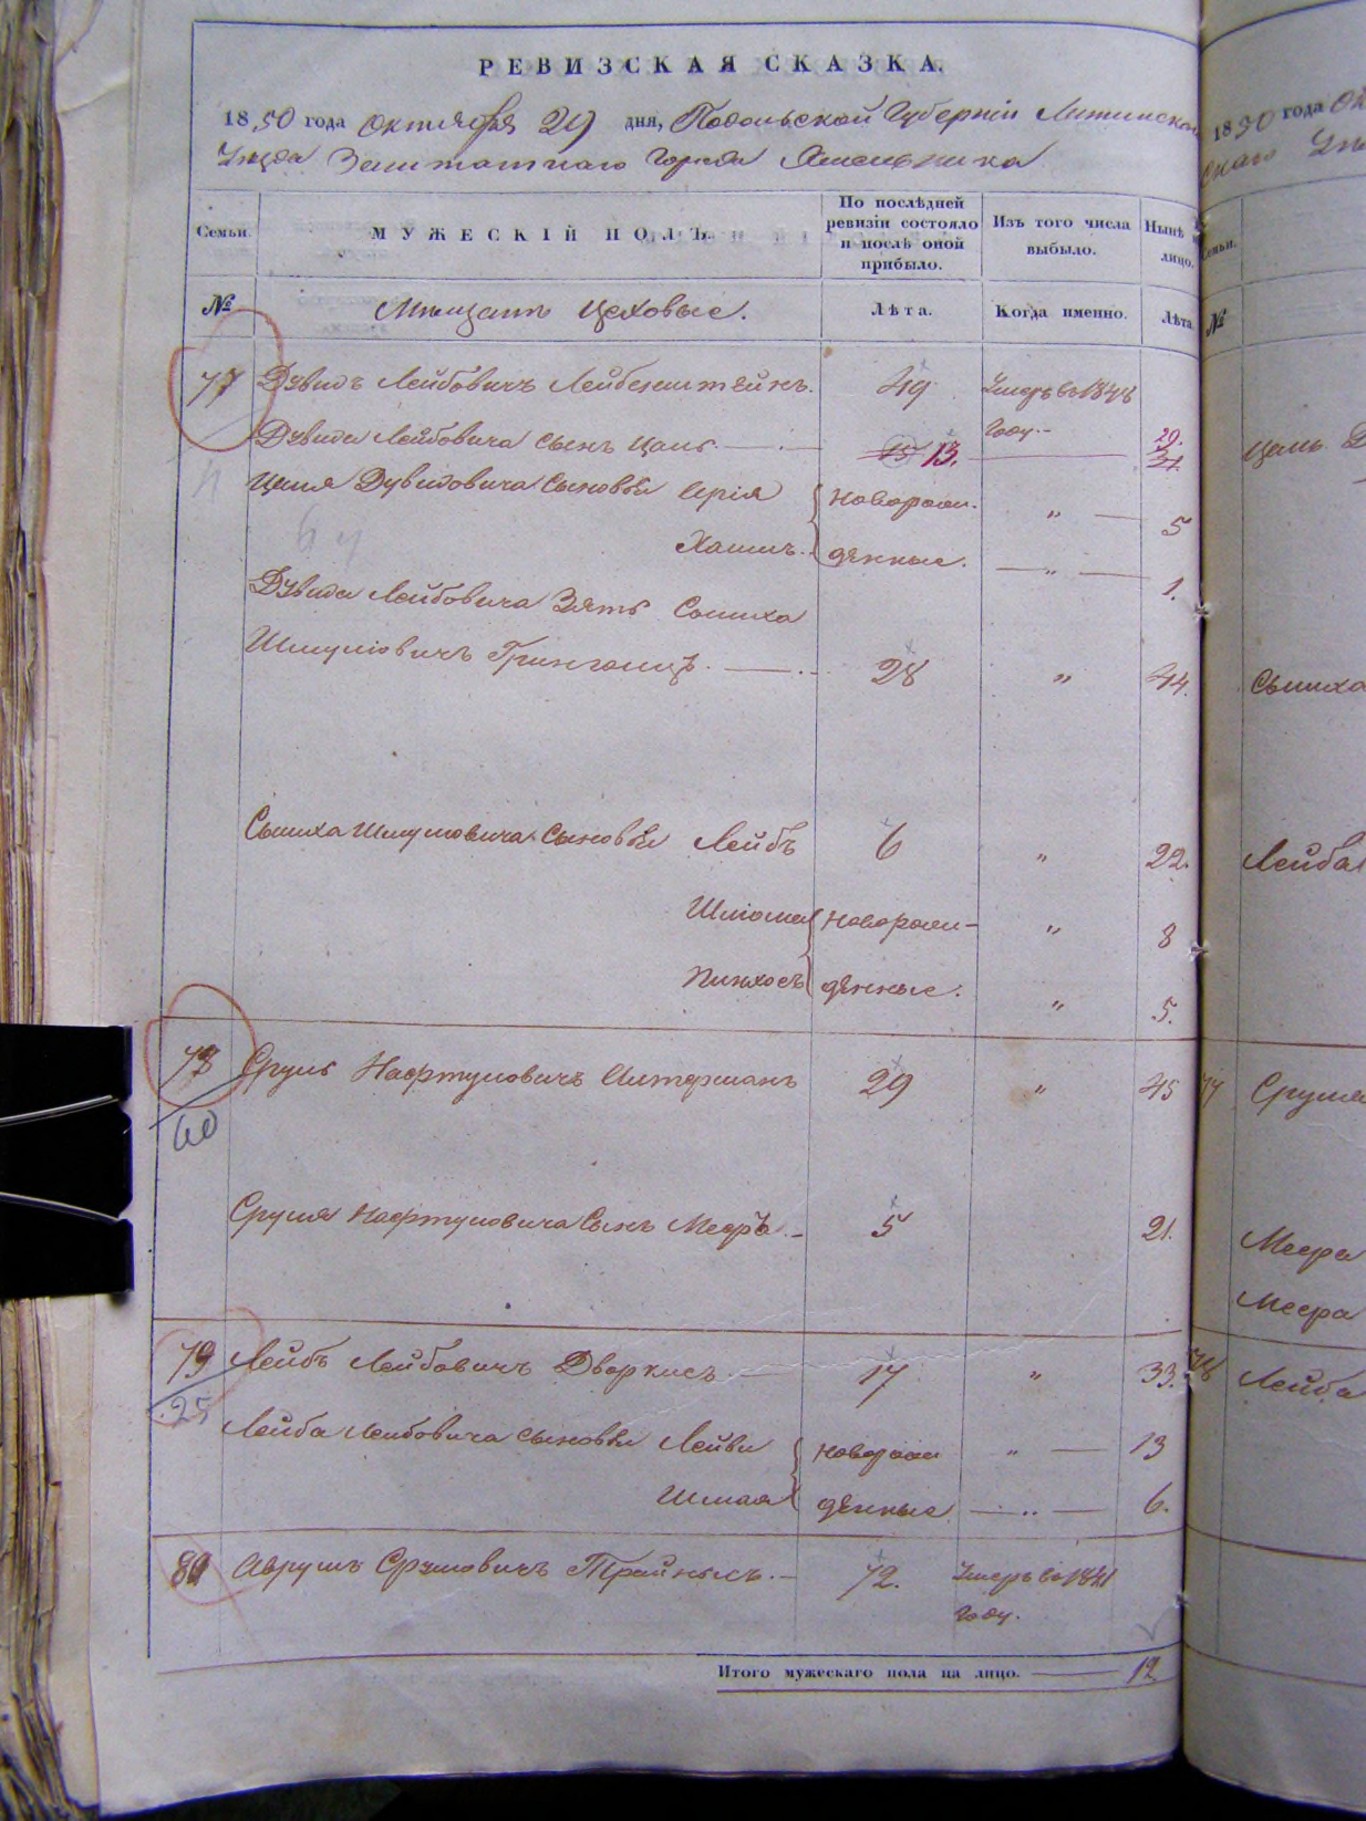 РЕВИЗСКАЯ СКАЗКА.
1850 года Октября 29 дня, Подольской Губерніи Литинскаго
Уезда Заштатнаго Города Хмельника
Семьи. МУЖЕСКІЙ ПОЛЪ. По послѣдней ревизіи состояло и послѣ оной прибыло. Изъ того числа выбыло. Нынѣ лицо.
№ Мещане Цеховые. Лѣта. Когда именно. Лѣта.
77 Дувидъ Лейбовичъ Лейбенштейнъ. 49 Умеръ въ 1848
Году.
Дувида Лейбовича сынъ Цаль. 15 13. 29. 31
Цаля Дувидовича Сыновья Арія новорож- " 5
Хаимъ. денные. " 1.
Дувида Лейбовича Зять Симха
Шмуліовичъ Грингольцъ. 28 " 44.
Симха Шмуловича Сыновья Лейбъ 6 " 22.
Шліома новорож- " 8
Пинхосъ денные. " 5.
78 Сруль Нафтуловичъ Алтерманъ 29 " 45
60
Сруля Нафтуловича Сынъ Меоръ. 5 21.
79 Лейбъ Лейбовичъ Дворкисъ 17 " 33.
25
Лейба Лейбовича сыновья Лейви новорож " 13
Шмая денные " 6.
80 Аврумъ Сруловичъ Трайнысъ. 72. Умеръ въ 1841
Году.
Итого мужескаго пола на лицо. 12
18 50 года
№
Цаль
Симха
Лейба
Сруля
Меера
Меера
Лейба